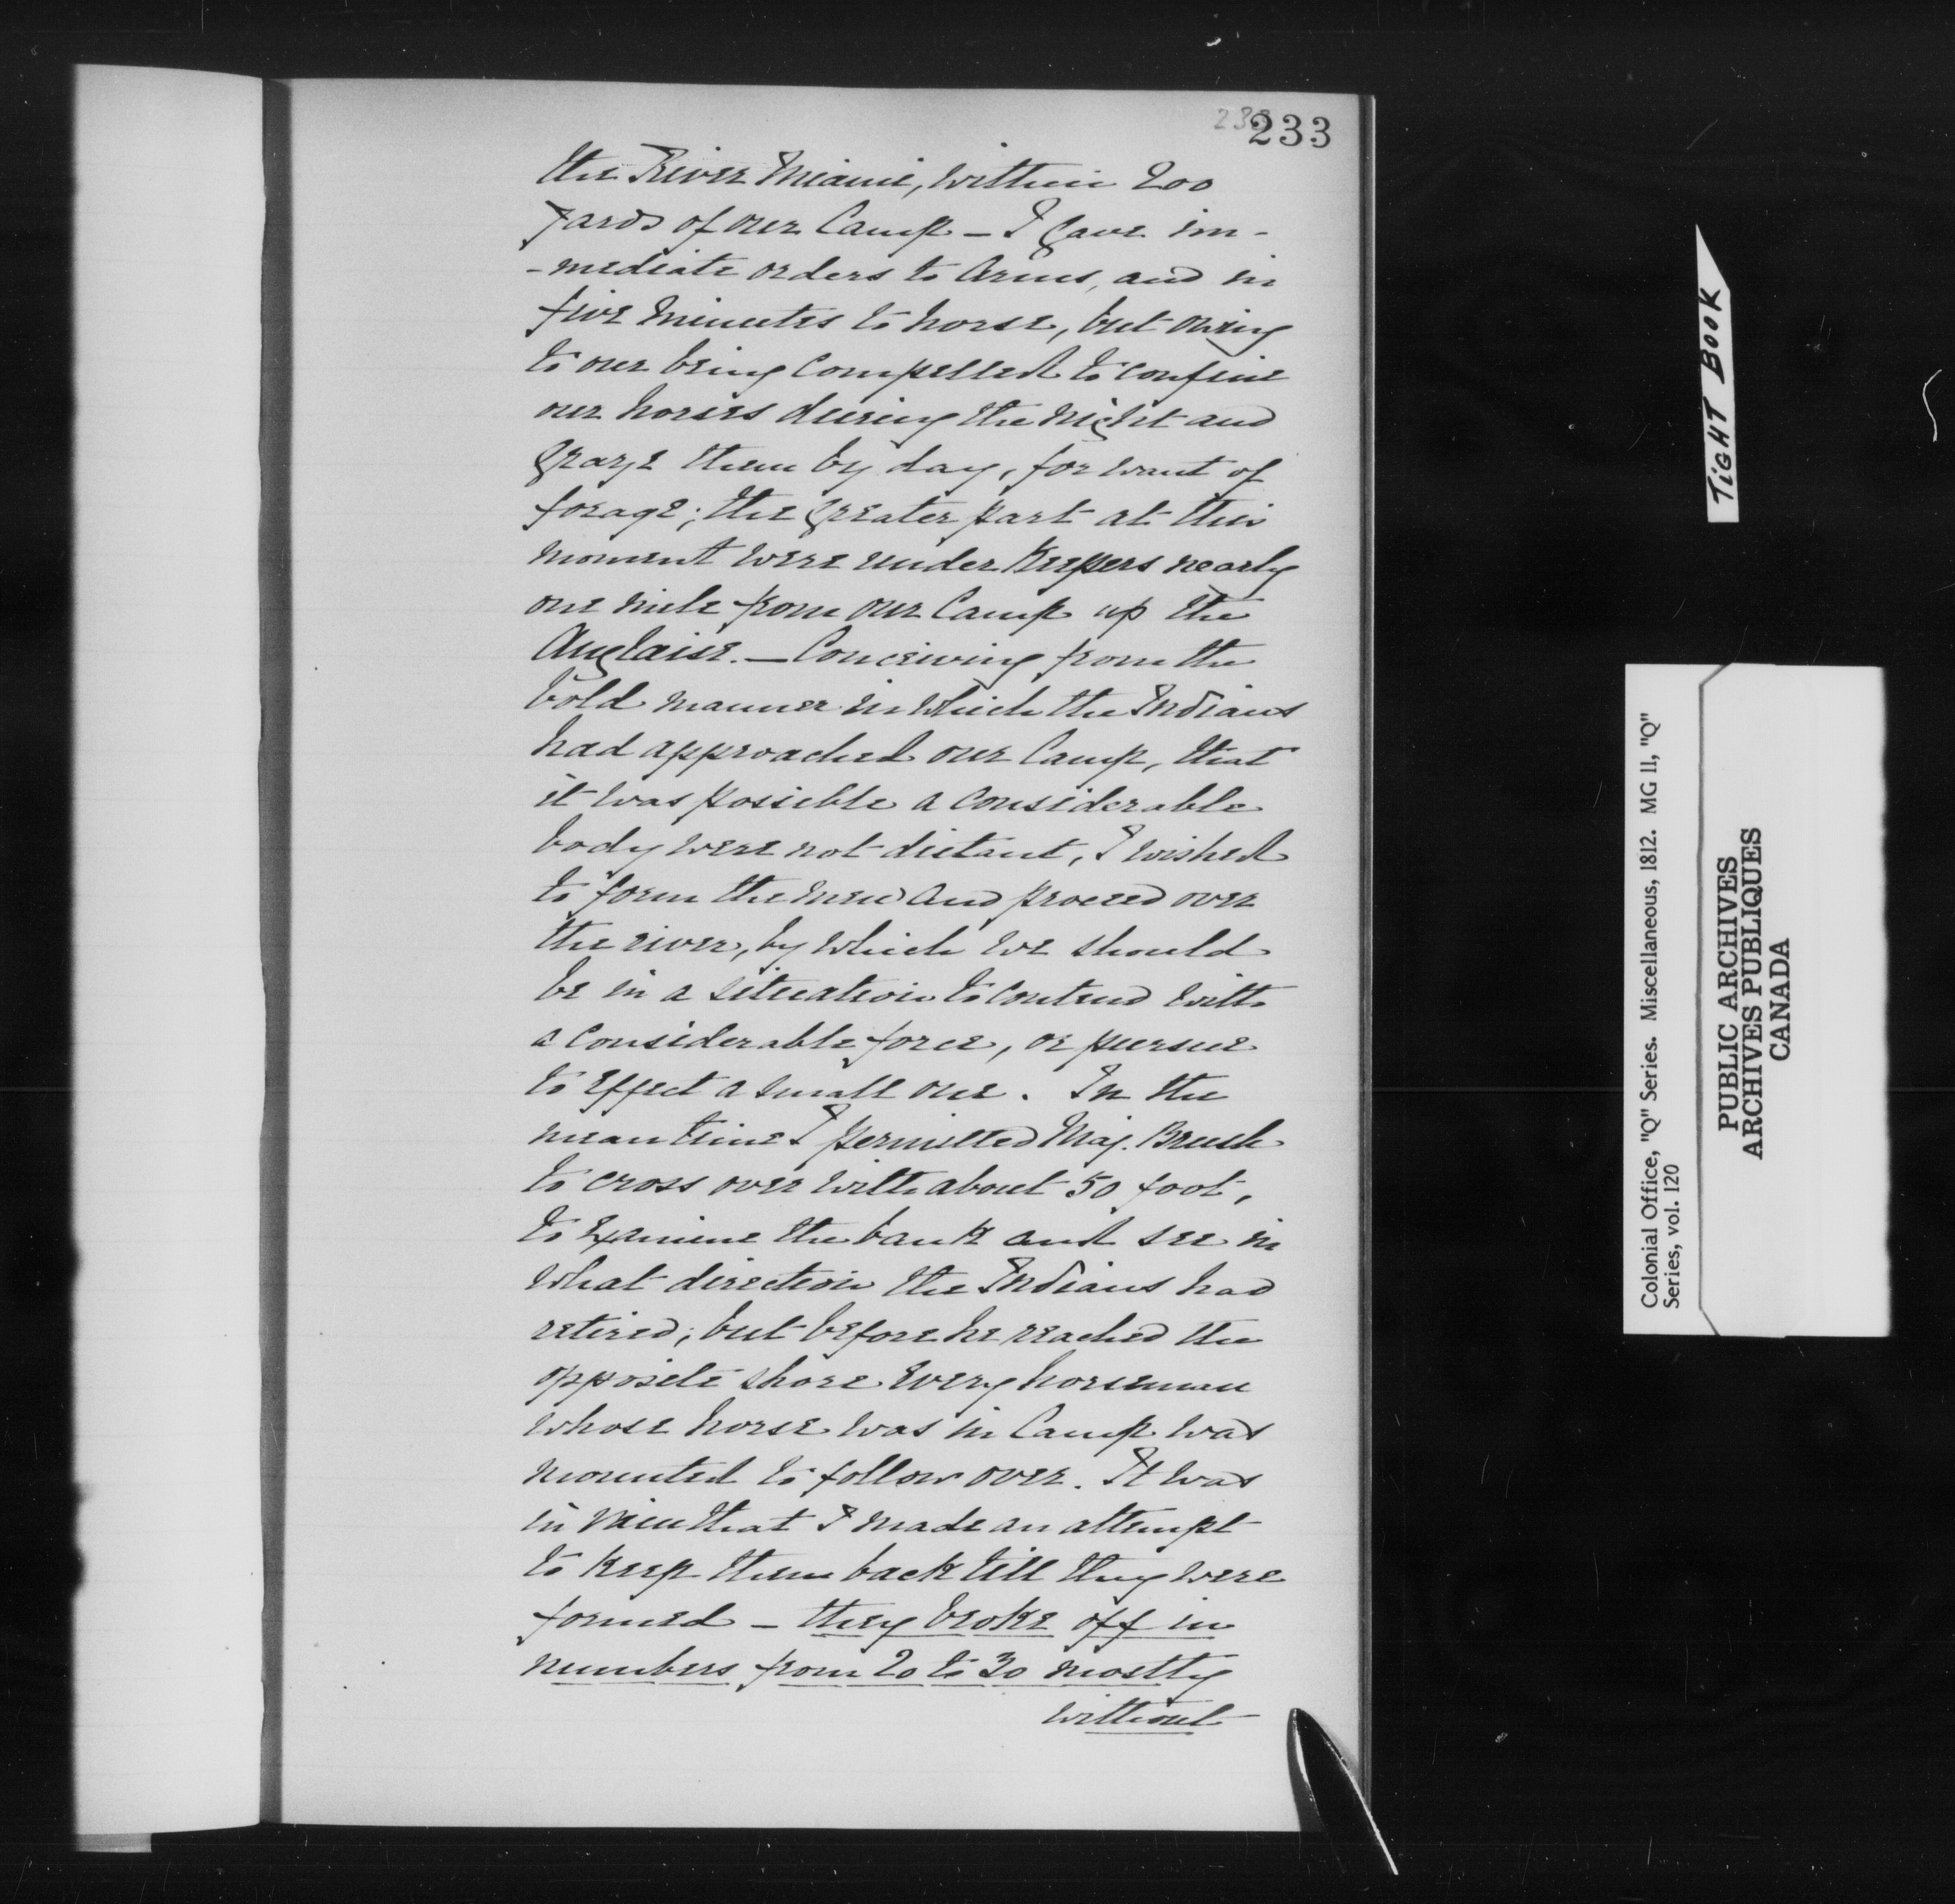 233
the River Miami, within 200
yards of our Camp - I gave im-
-mediate orders to Arms, and in
five minutes to horse, but owing
to our being compelled to confine
our horses during the night and
graze them by day, for want of
forage; the greater part at this
moment were under keepers nearly
one mile from our Camp up the
Auglaise. - Conceiving from the
bold manner in which the Indians
had approached our Camp, that
it was possible a considerable
body were not distant, I wished
to form the men and proceed over
the river, by which we should
be in a situation to contend with
a considerable force, or pursue
to effect a small one. In the
mean time I permitted Maj. Brush
to cross over with about 50 foot,
to examine the bank and see in
what direction the Indians had
retired; but before he reached the
opposite shore every horseman
whose horse was in Camp was
mounted to follow over. It was
in vain that I made an attempt
to keep them back till they were
formed - they broke off in
numbers from 20 to 30 mostly
without
TiGHT BOOK
Colonial Office, "Q" Series. Miscellaneous, 1812. MG 11, "Q"
Series, vol. 120
PUBLIC ARCHIVES
ARCHIVES PUBLIQUES
CANADA